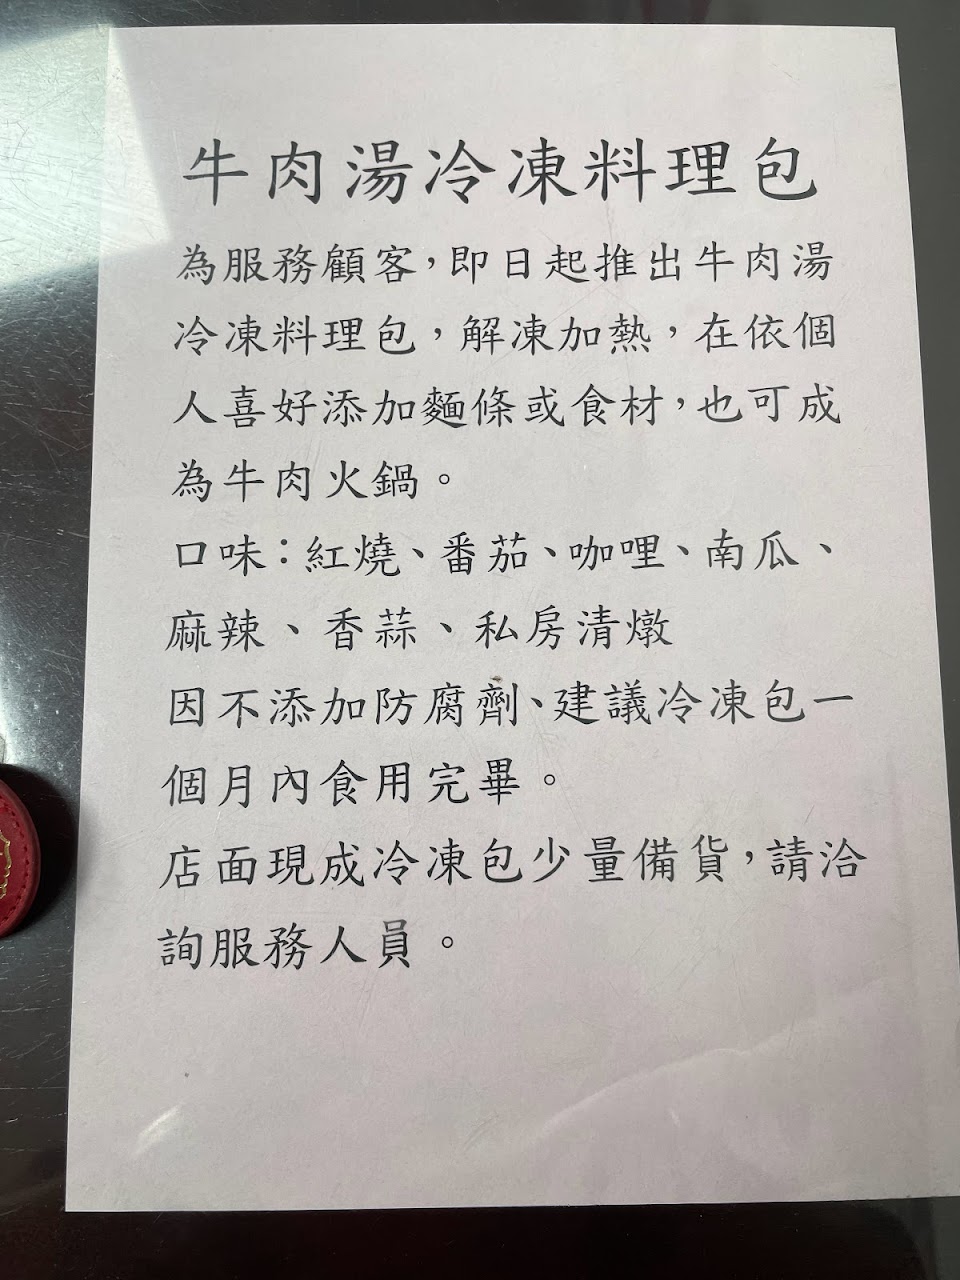 牛肉湯冷凍料理包
為服務顧客，即日起推出牛肉湯
冷凍料理包，解凍加熱，在依個
人喜好添加麵條或食材，也可成
為牛肉火鍋。
口味：紅燒、番茄、咖哩、南瓜、
麻辣、香蒜、私房清燉
因不添加防腐劑、建議冷凍包一
個月內食用完畢。
店面現成冷凍包少量備貨，請洽
詢服務人員。